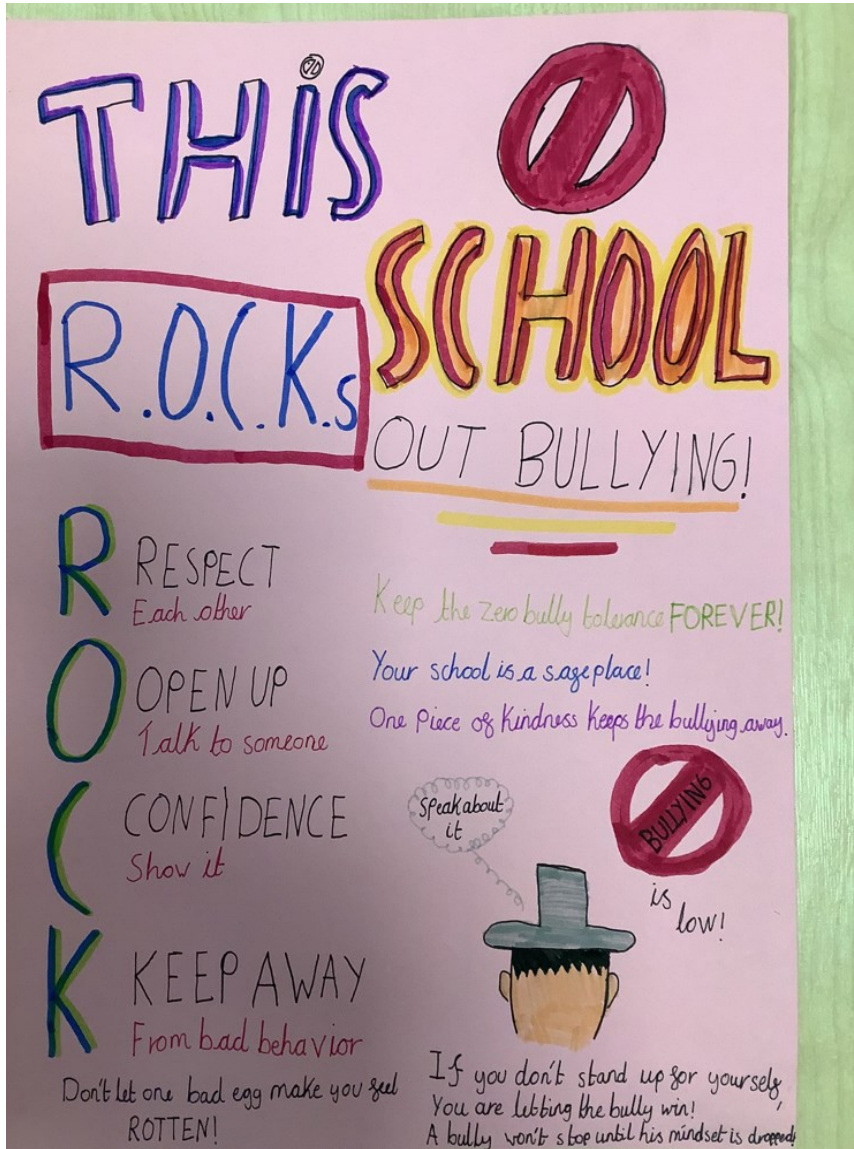 THiS
SCHOOL
R.O.C.K.s
OUT BULLYING!
R RESPECT
Each other
O OPEN UP
Talk to someone
C CONFIDENCE
Show it
K KEEP AWAY
From bad behavior
Don't let one bad egg make you feel
ROTTEN!
Keep the zero bully tolerance FOREVER!
Your school is a sage place!
One piece of kindness keeps the bullying away.
Speak about
it
BULLYING
is
low!
If you don't stand up for yourself,
You are letting the bully win!
A bully won't stop until his mindset is dropped!